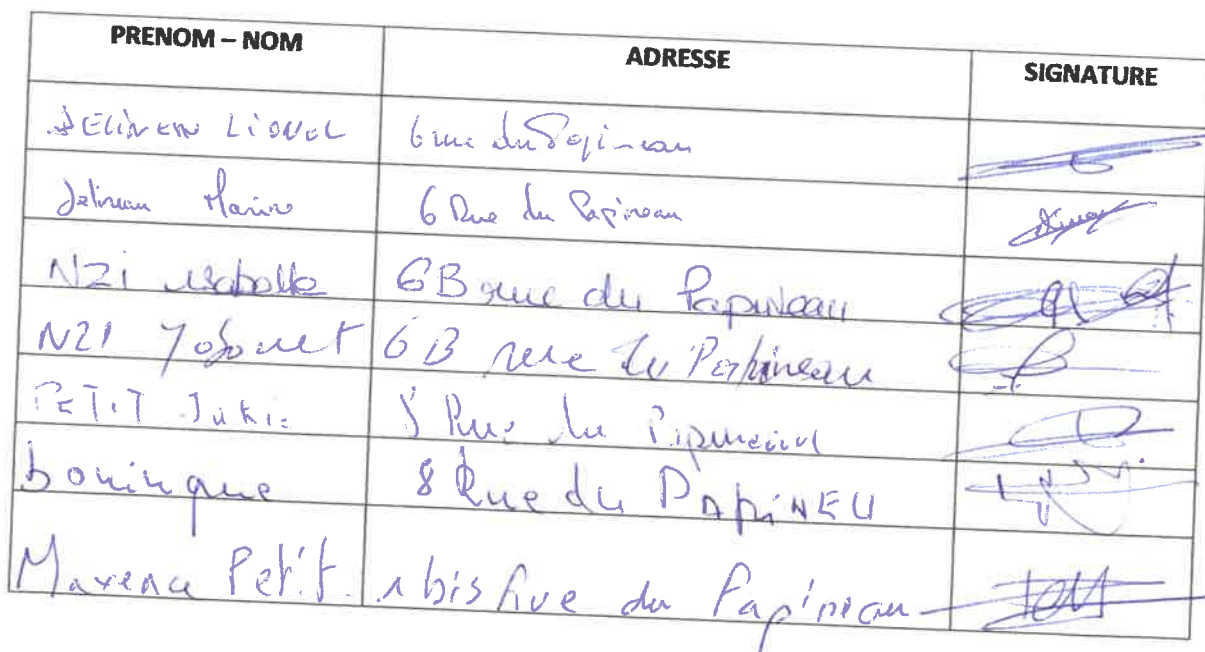 PRENOM – NOM ADRESSE SIGNATURE
DELINEAU Lionel 6 rue du Papineau
Delineau Marine 6 Rue du Papineau
NZI Isabelle 6B rue du Papineau
NZI 6B rue du Papineau
PETIT Julie Rue du Papineau
8 Rue du PAPiNEU
Maxence Petit 1 bis Rue du Papineau